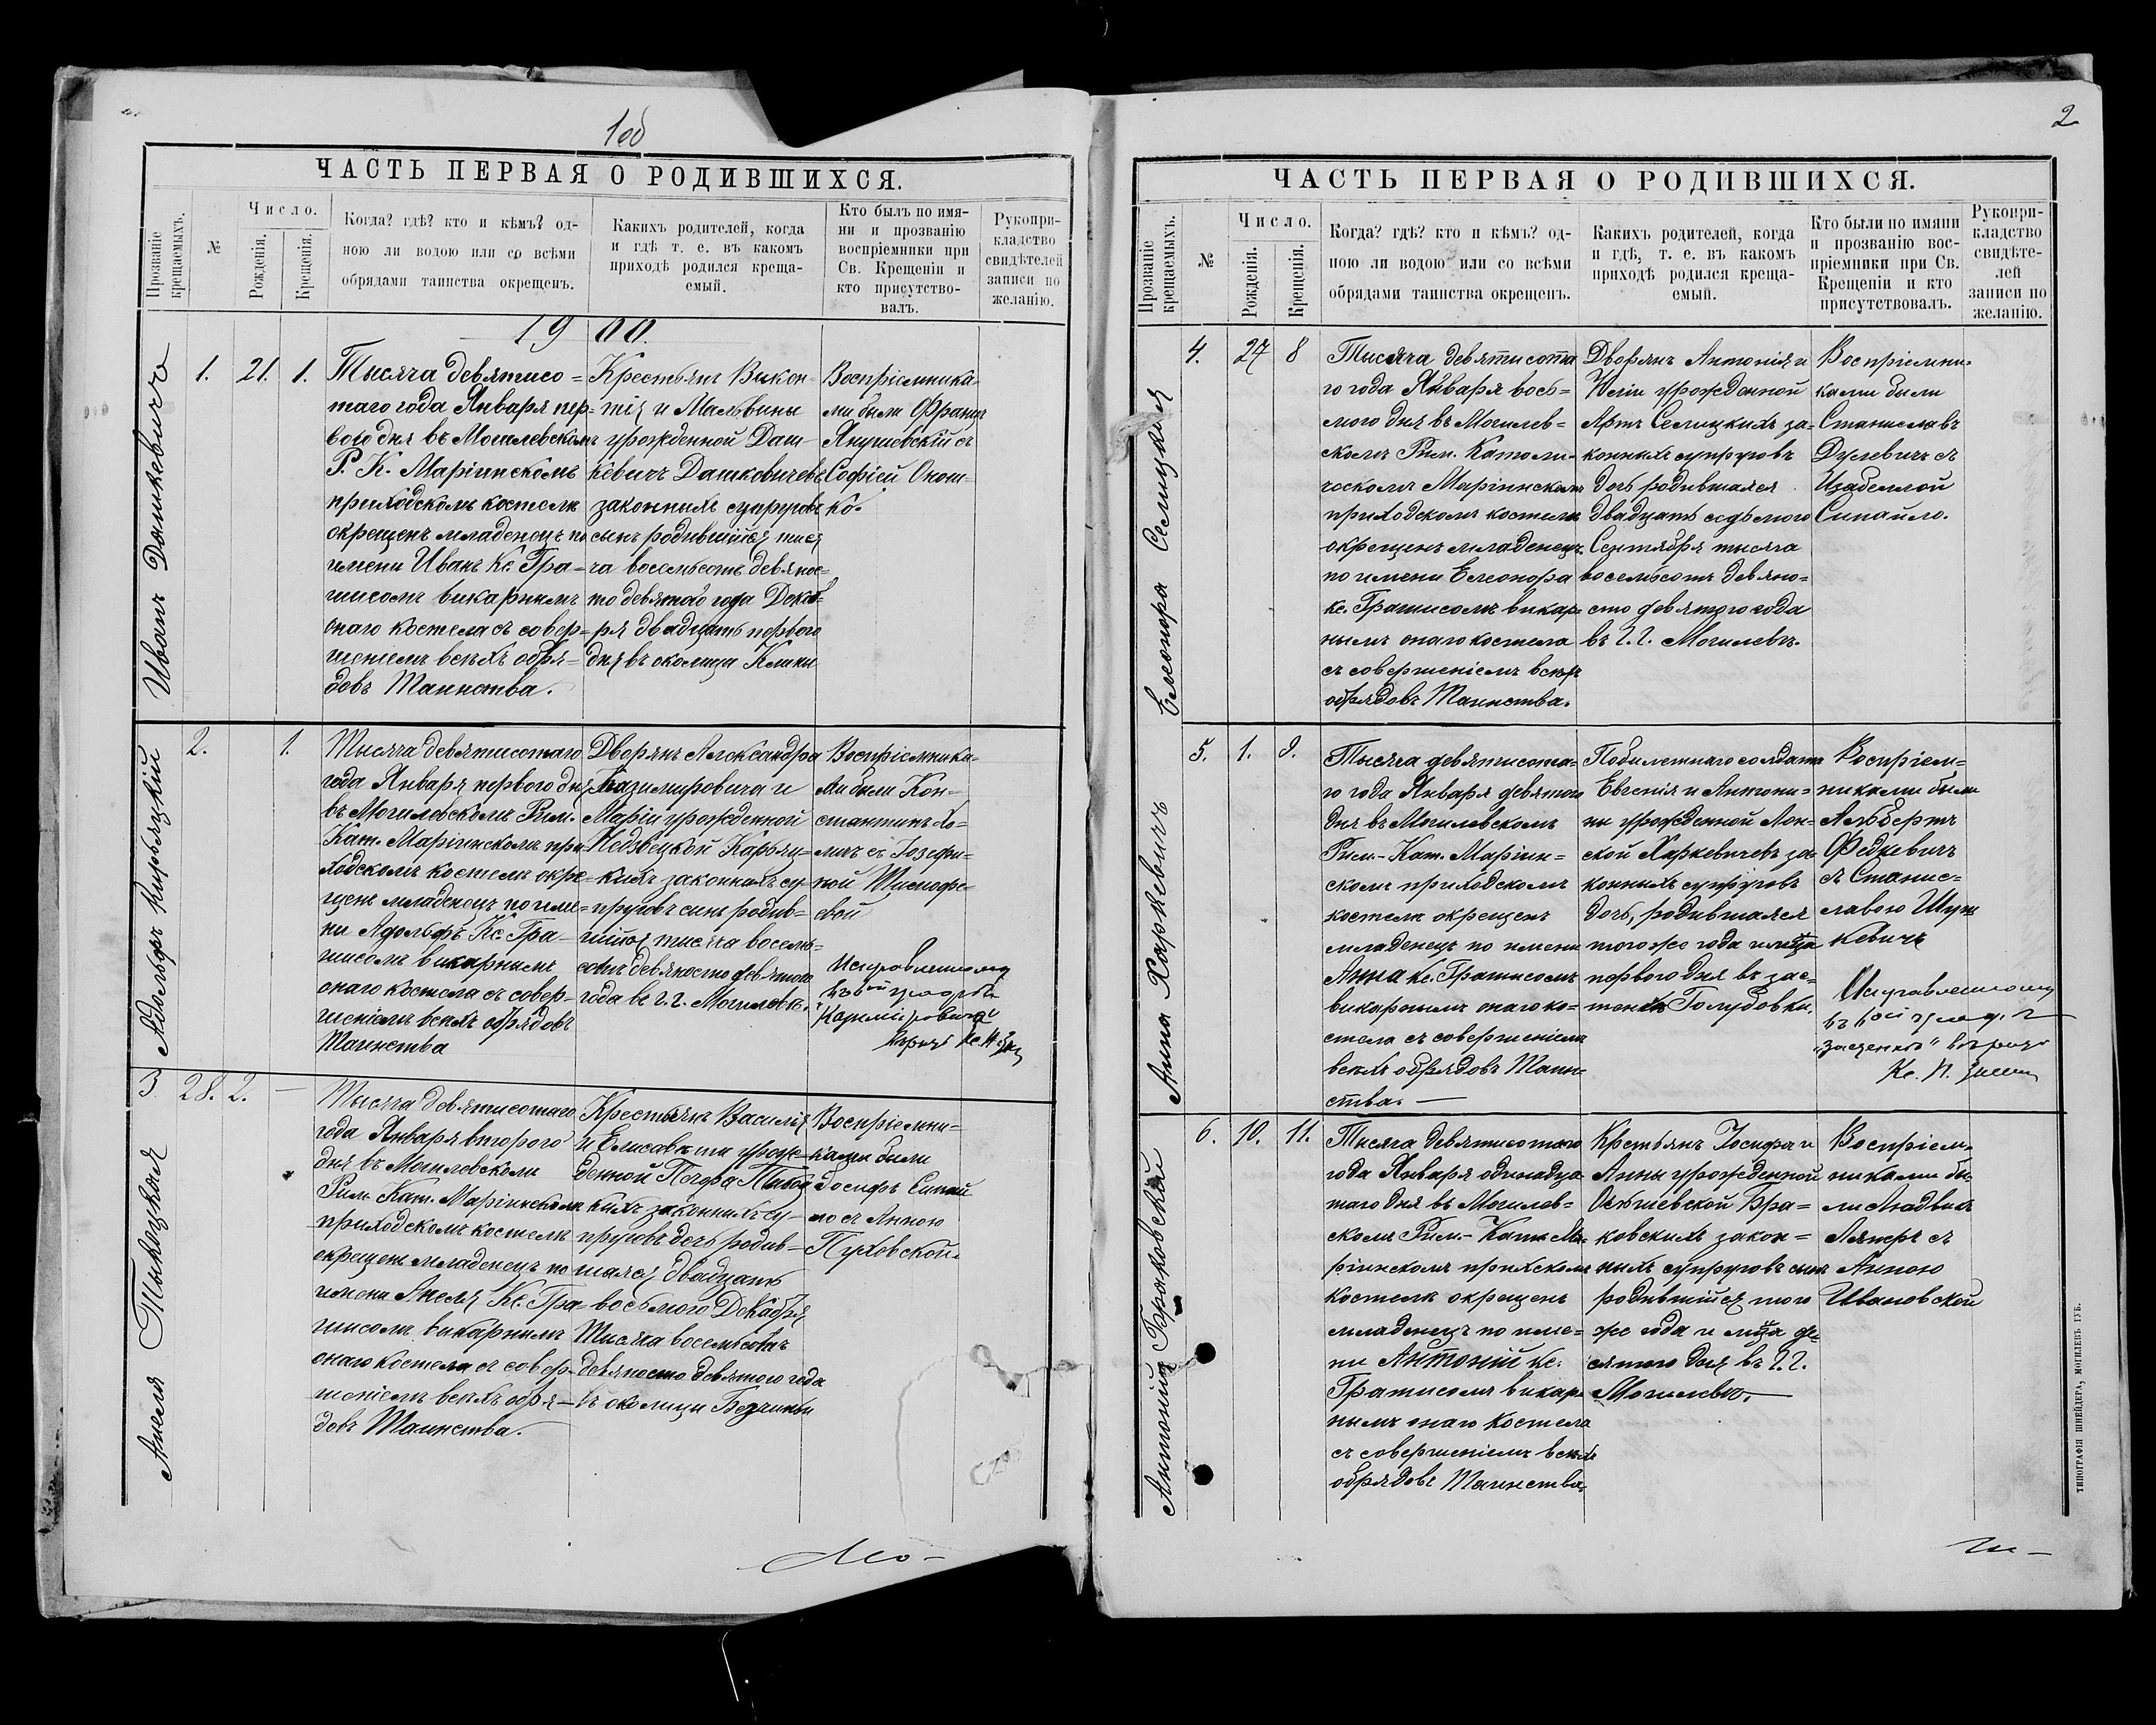 1об
ЧАСТЬ ПЕРВАЯ О РОДИВШИХСЯ.
Прозваніе крещаемыхъ.
№
Число.
Рожденія.
Крещенія.
Когда? гдѣ? кто и кѣмъ? од-
ною ли водою или со всѣми
обрядами таинства окрещенъ.
Какихъ родителей, когда
и гдѣ т. е. въ какомъ
приходѣ родился креща-
емый.
Кто былъ по имя-
ни и прозванію
воспріемники при
Св. Крещеніи и
кто присутство-
валъ.
Рукопри-
кладство
свидѣтелей
записи по
желанію.
1900.
Иванъ Дашкевичъ
1. 21. 1.
Тысяча девятисо=
таго года Января пер=
вого дня въ Могилевскомъ
Р. К. Маріинскомъ
приходскомъ костелѣ
окрещенъ младенецъ по
имени Иванъ Кс. Гра=
шисомъ викарнымъ
онаго костела съ совер=
шеніемъ всѣхъ обря=
довъ Таинства.
Крестьянъ Викен=
тія и Мальвины
урожденной Даш=
кевичъ Дашковичевъ
законныхъ супруговъ
сынъ родившійся тыся
ча восемьсотъ девянос=
то девятого года Декаб=
ря двадцать первого
дня въ околицы
Воспріемника=
ми были Францъ
Янушевскій съ
Софіей Окош=
ко.
Адольфъ
2. 1.
Тысяча девятисотаго
года Января первого дня
въ Могилевскомъ Рим.
Кат. Маріинскомъ при
ходскомъ костелѣ окре=
щенъ младенецъ по име=
ни Адольфъ Кс. Гра=
шисомъ викарнымъ
онаго костела съ совер=
шеніемъ всѣхъ обрядовъ
Таинства
Дворянъ Александра
Казимировича и
Маріи урожденной
Недзвецкой
кихъ законныхъ су=
пруговъ сынъ родив=
шійся тысяча восемь=
сотъ девяносто девятого
года въ г. г. Могилевѣ.
Воспріемника=
ми были Кон=
стантинъ
съ Іозефи=
ной
свой
Исправленному
въ
"Казиміровича"
вѣрить Кс.
Анеля
3 28. 2. —
Тысяча девятисотаго
года Января второго
дня въ Могилевскомъ
Рим. Кат. Маріинскомъ
приходскомъ костелѣ
окрещенъ младенецъ по
имени Анеля Кс. Гра=
шисомъ викарнымъ
онаго костела съ совер=
шеніемъ всѣхъ обря=
довъ Таинства.
Крестьянъ Василія
и Елисаветы урож=
денной
кихъ законныхъ су=
пруговъ дочь родив=
шаяся двадцать
восьмого Декабря
Тысяча восемьсотъ
девяносто девятого года
въ околицы
Воспріемни=
ками были
Іосифъ Сипай
ло съ Анною
Пуховской.
2
ЧАСТЬ ПЕРВАЯ О РОДИВШИХСЯ.
Прозваніе крещаемыхъ.
№
Число.
Рожденія.
Крещенія.
Когда? гдѣ? кто и кѣмъ? од-
ною ли водою или со всѣми
обрядами таинства окрещенъ.
Какихъ родителей, когда
и гдѣ, т. е. въ какомъ
приходѣ родился креща-
емый.
Кто были по имяни
и прозванію вос-
пріемники при Св.
Крещеніи и кто
присутствовалъ.
Рукопри-
кладство
свидѣте-
лей
записи по
желанію.
Елеонора Селицкая
4. 27 8
Тысяча девятисота
го года Января вось=
мого дня въ Могилев=
скомъ Рим. Католи=
ческомъ Маріинскомъ
приходскомъ костелѣ
окрещенъ младенецъ
по имени Елеонора
кс. Грашисомъ викар=
нымъ онаго костела
съ совершеніемъ всѣхъ
обрядовъ Таинства.
Дворянъ Антонія и
Юліи урожденной
Арть Селицкихъ за=
конныхъ супруговъ
дочь родившаяся
двадцать седьмого
Сентября тысяча
восемьсотъ девяно=
сто девятого года
въ г. г. Могилевѣ.
Воспріемни=
ками были
Станиславъ
Дулевичъ съ
Изабеллой
Сипайло.
Анна Харкевичъ
5. 1. 9.
Тысяча девятисота=
го года Января девятого
дня въ Могилевскомъ
Рим.-Кат. Маріин=
скомъ приходскомъ
костелѣ окрещенъ
младенецъ по имени
Анна кс. Грашисомъ
викарнымъ онаго ко=
стела съ совершеніемъ
всѣхъ обрядовъ Таин
ства. —
Побилетнаго солдата
Евгенія и Антони=
ны урожденной Лон=
ской Харкевичевъ за=
конныхъ супруговъ
дочь, родившаяся
того же года и мѣсяца
первого дня въ зас=
тенкѣ Голудовка.
Воспріем=
никами были
Альбертъ
Федкевичъ
съ Станис=
лавою Шуш
кевичъ
Исправленному
въ
"застенкѣ" вѣрить
Кс. П.
Антоній Браковскій
6. 10. 11.
Тысяча девятисотаго
года Января одинадца
таго дня въ Могилев=
скомъ Рим.-Кат. Ма=
ріинскомъ прихскомъ
костелѣ окрещенъ
младенецъ по име=
ни Антоній кс.
Грашисомъ викар=
нымъ онаго костела
съ совершеніемъ всѣхъ
обрядовъ Таинства.
Крестьянъ Іосифа и
Анны урожденной
Бра=
ковскихъ закон=
ныхъ супруговъ сынъ
родившійся того
же года и мѣсяца де=
сятого дня въ г. г.
Могилевѣ. —
Воспріем=
никами бы=
ли Людвикъ
съ
Анною
Ивановской
ТИПОГРАФІЯ ШНЕЙДЕРА, МОГИЛЕВЪ ГУБ.